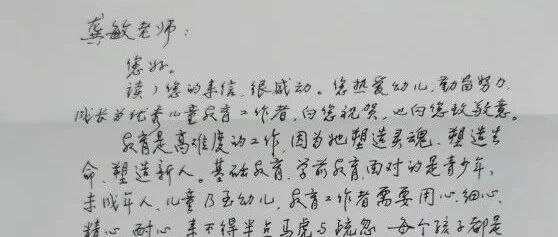 龚敏老师：
您好。
读了您的来信，很感动。您热爱幼儿，勤奋努力，
成长为优秀儿童教育工作者，向您祝贺，也向您致敬意。
教育是高难度的工作，因为她塑造灵魂、塑造生
命、塑造新人。基础教育、学前教育面对的是青少年，
未成年人、儿童乃至幼儿，教育工作者需要用心、细心、
精心、耐心，来不得半点马虎与疏忽，每个孩子都是